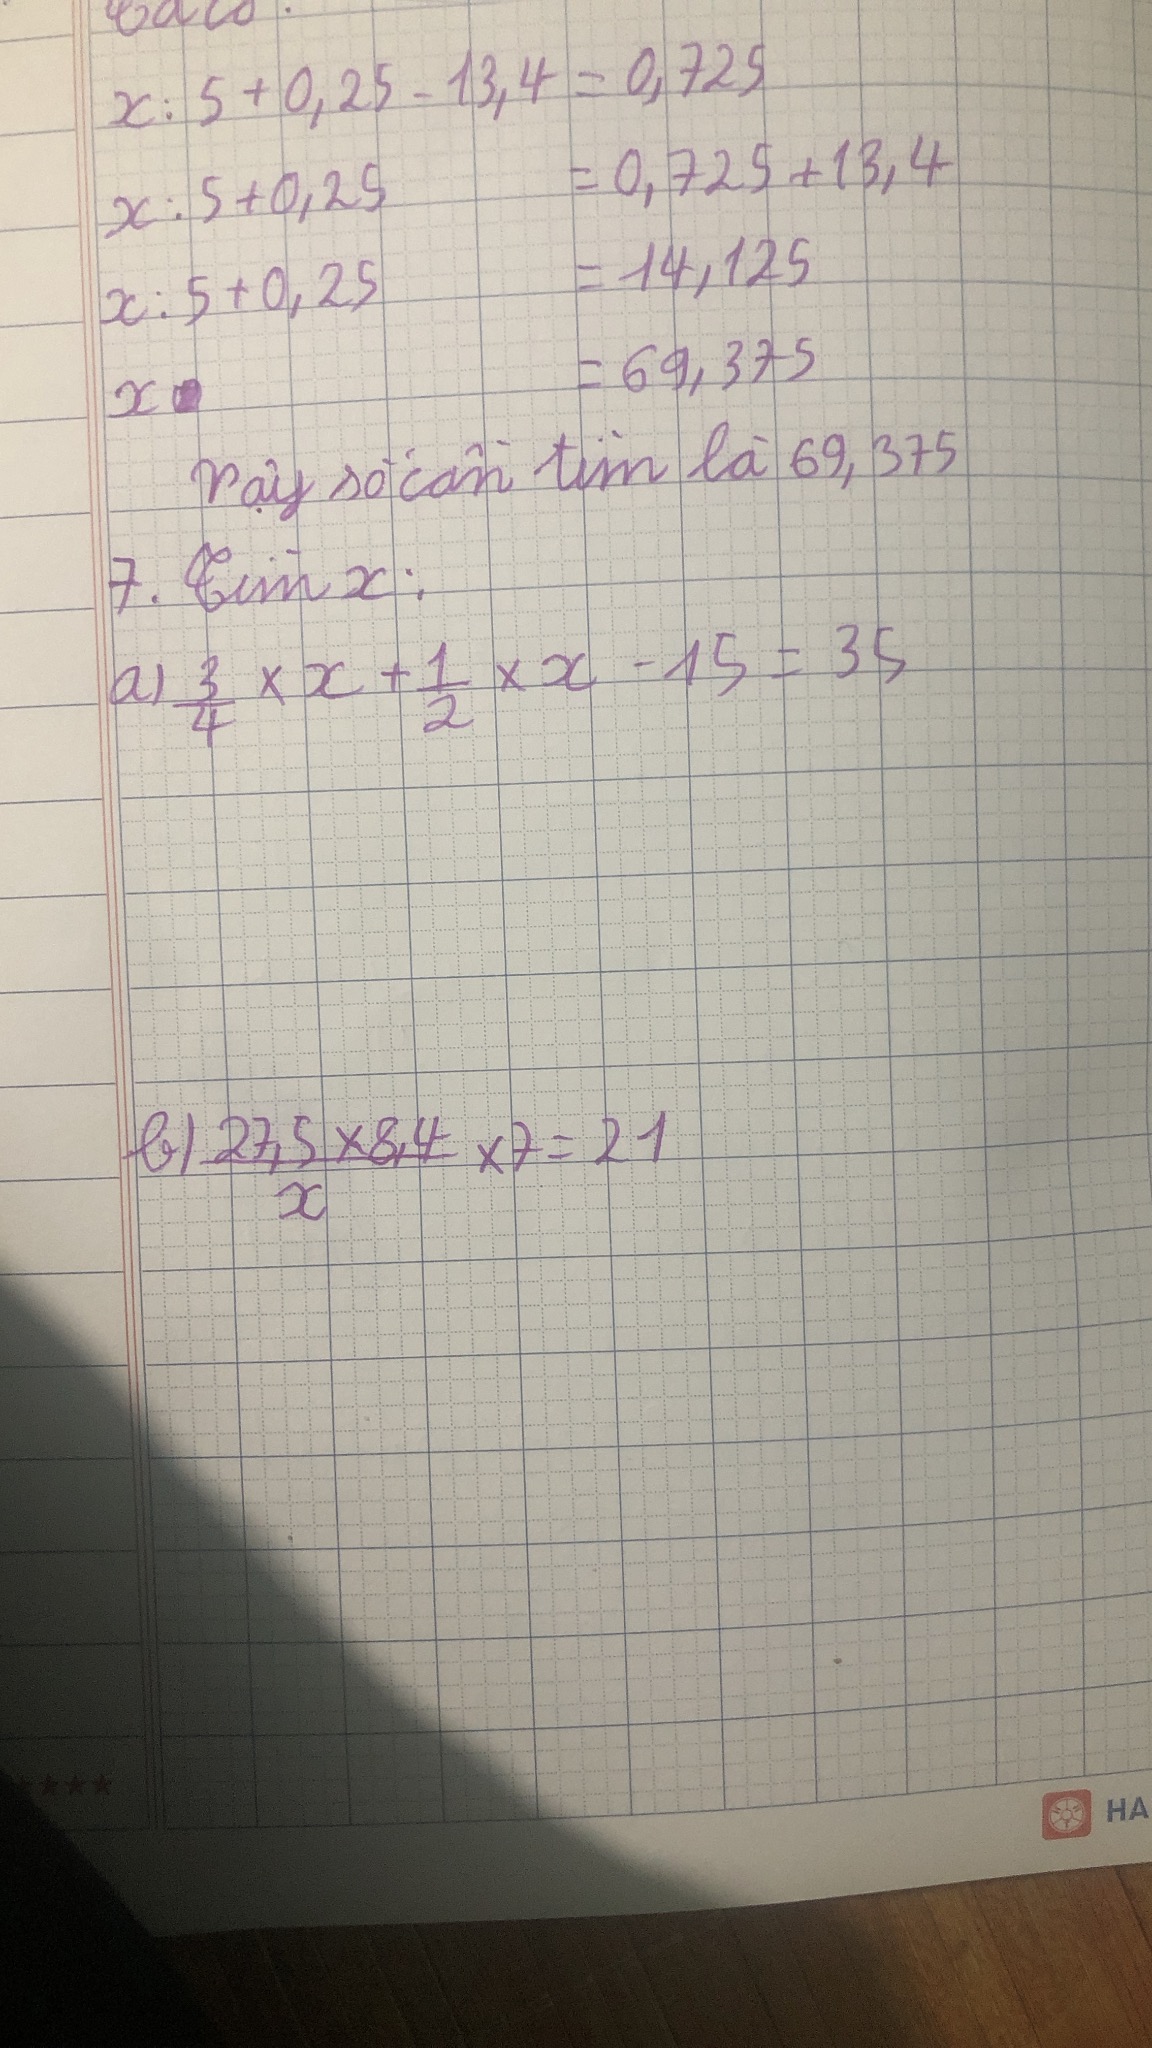 x : 5 + 0,25 - 13,4 = 0,725
x : 5 + 0,25 = 0,725 + 13,4
x : 5 + 0,25 = 14,125
x = 69,375
Vậy số cần tìm là 69,375
7. Tìm x :
a) 3/4 × x + 1/2 × x - 15 = 35
b) 27,5 × 8,4 / x × 7 = 21
HA